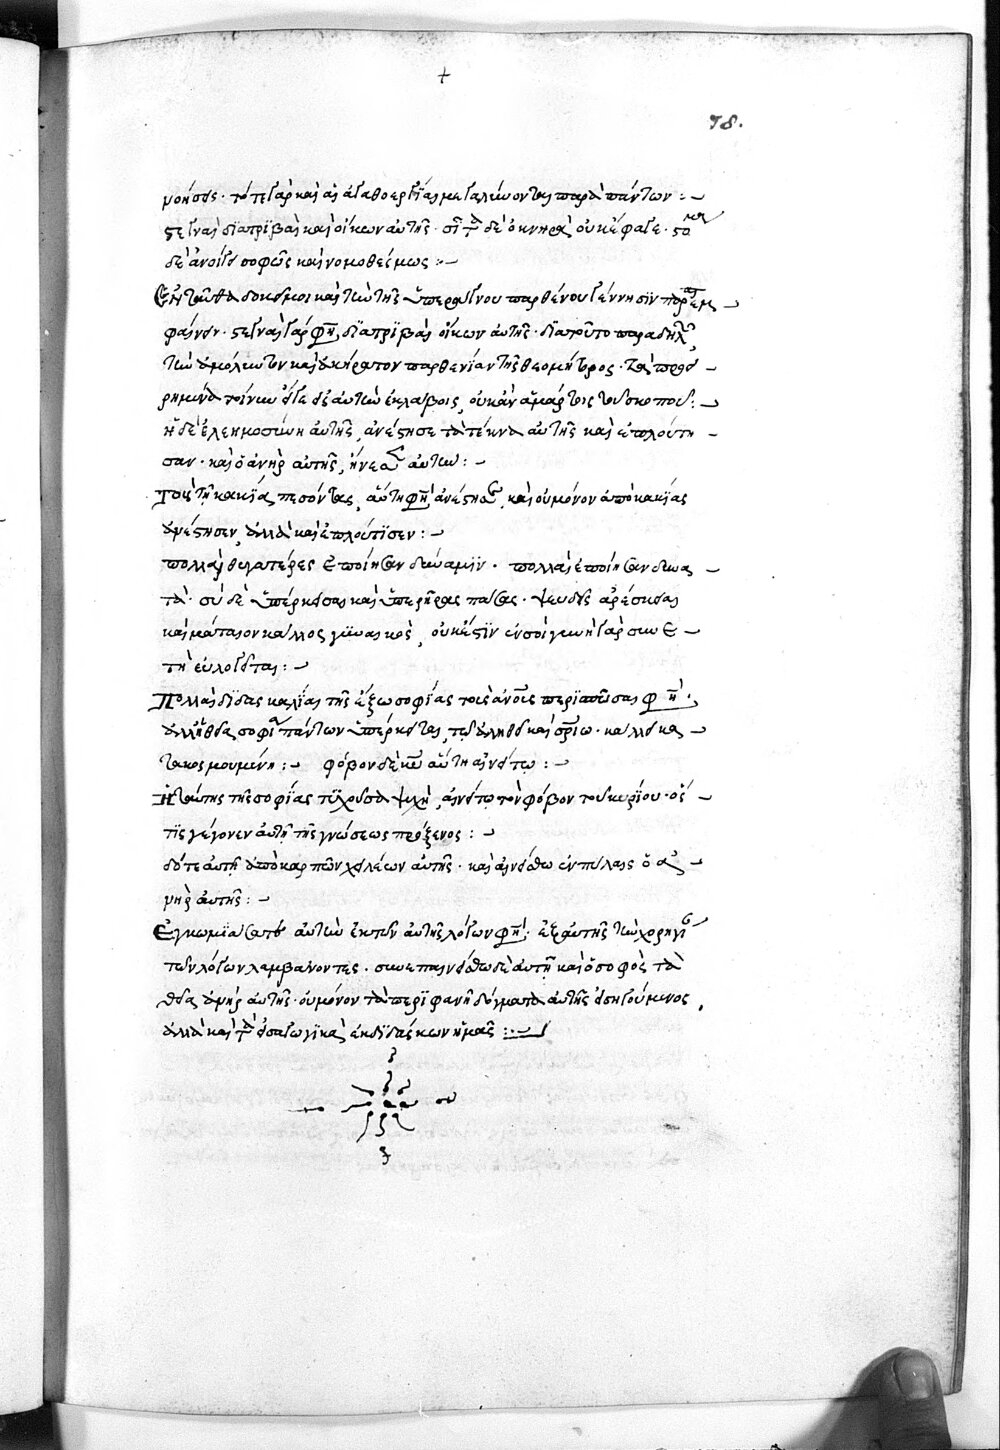 +
78.
μονήσεως· τότε γὰρ καὶ αἱ ἀγαθοεργίαι μεγαλύνονται παρὰ πάντων:—
στεγναὶ διατριβαὶ καὶ οἴκων αὐτῆς· σῖτα δὲ ὀκνηρὰ οὐκ ἔφαγε· στόμα
δὲ ἀνοίγει σοφῶς καὶ νομοθέσμως:—
Ἐνταῦθα δοκεῖ μοι καὶ τὴν τῆς ὑπεράγνου παρθένου γέννησιν παρεμ
φαίνειν· στεγναὶ γάρ φησι διατριβαὶ οἴκων αὐτῆς· διὰ τοῦτο παραδηλοῖ
τὴν ἀμόλυντον καὶ ἀκήρατον παρθενίαν τῆς θεομήτορος· τὰ προει
ρημένα τοίνυν εἴγε εἰς αὐτὴν ἐκλάβοις, οὐκ ἂν ἁμάρτοις τοῦ σκοποῦ:—
ἡ δὲ ἐλεημοσύνη αὐτῆς, ἀνέστησε τὰ τέκνα αὐτῆς καὶ ἐπλούτη
σαν· καὶ ὁ ἀνὴρ αὐτῆς, ᾔνεσεν αὐτήν:—
Τοὺς τῇ κακίᾳ πεσόντας, αὕτη φησὶν ἀνέστησε, καὶ οὐ μόνον ἀπὸ κακίας
ἀνέστησεν, ἀλλὰ καὶ ἐπλούτισεν:—
πολλαὶ θυγατέρες ἐποίησαν δύναμιν· πολλαὶ ἐποίησαν δυνα
τά· σὺ δὲ ὑπέρκεισαι καὶ ὑπερῆρας πάσας· ψευδεῖς ἀρέσκειαι
καὶ μάταιον κάλλος γυναικός, οὐκ ἔστιν ἐν σοί γυνὴ γὰρ συνε
τὴ εὐλογεῖται:—
Πολλὰς ἰδέας καλίας τῆς ἔξω σοφίας τοῖς ἀνοις περιποιεῖσαι φησί,
ἀλλ' ἡ θεία σοφία πάντων ὑπέρκειται, τῷ ἀληθεῖ καὶ θείῳ κάλλει κα
τακοσμουμένη:— φόβον δὲ κυ αὕτη αἰνείτω:—
Ἡ ταύτης τῆς σοφίας τυχοῦσα ψυχὴ, αἰνείτω τὸν φόβον τοῦ κυρίου· ὅσ
τις γέγονεν αὐτῇ τῆς γνώσεως πρόξενος:—
δότε αὐτῇ ἀπὸ καρπῶν χειλέων αὐτῆς· καὶ αἰνείσθω ἐν πύλαις ὁ ἀ
νὴρ αὐτῆς:—
Ἐγκωμιάσατε αὐτὴν ἐκ τῶν αὐτῆς λόγων φησί· ἐξ αὐτῆς τὴν χορηγίαν
τῶν λόγων λαμβάνοντες· συνεπαινείσθω δὲ αὐτῇ καὶ ὁ σοφὸς τὰ
θεῖα ἀνὴρ αὐτῆς· οὐ μόνον τὰ περιφανῆ δόγματα αὐτῆς εἰσηγούμενος,
ἀλλὰ καὶ τὰ εἰσαγωγικὰ ἐκδιδάσκων ἡμᾶς:—